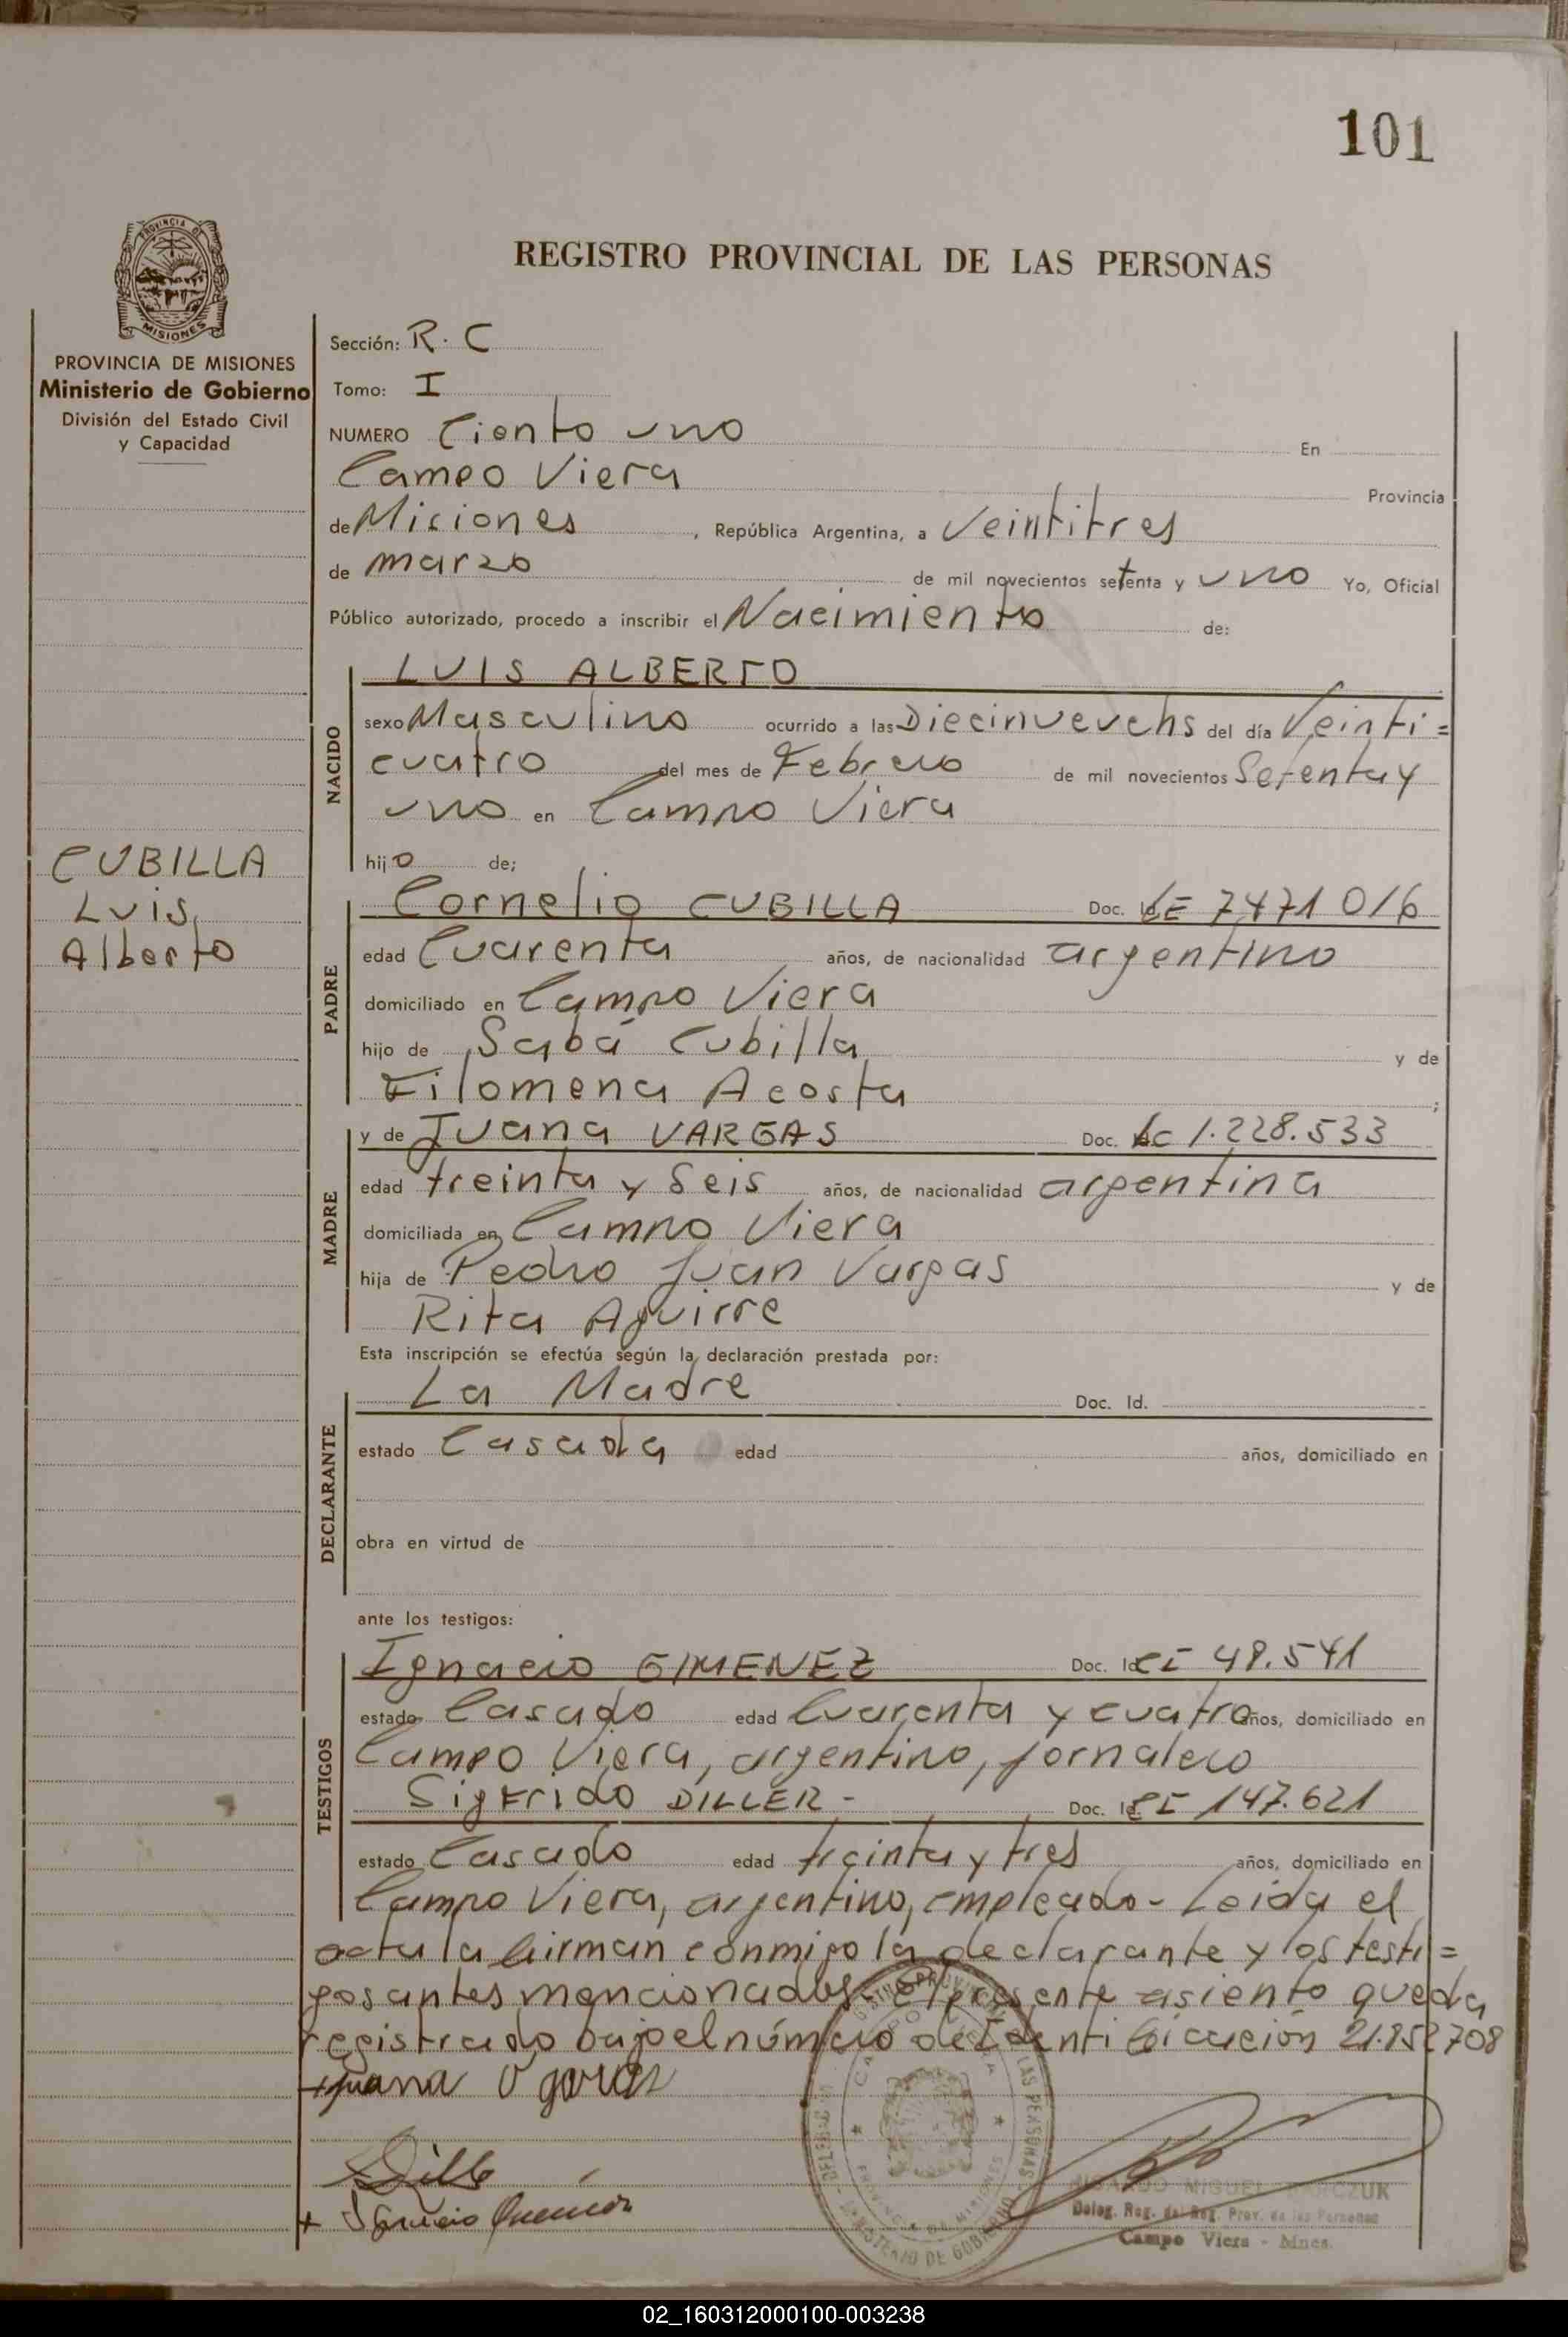 101
REGISTRO PROVINCIAL DE LAS PERSONAS
PROVINCIA DE MISIONES
Ministerio de Gobierno
División del Estado Civil
y Capacidad
CUBILLA
Luis
Alberto
Sección: R. C
Tomo: I
NUMERO Ciento uno En
Campo Viera Provincia
de Misiones, República Argentina, a Veintitres
de marzo de mil novecientos setenta y uno Yo, Oficial
Público autorizado, procedo a inscribir el Nacimiento de:
NACIDO
LUIS ALBERTO
sexo Masculino ocurrido a las Diecinueve hs del día Veinti=
cuatro del mes de Febrero de mil novecientos Setenta y
uno en Campo Viera
hijo de;
PADRE
Cornelio CUBILLA Doc. Id. LE 7471016
edad Cuarenta años, de nacionalidad argentino
domiciliado en Campo Viera
hijo de Sabá Cubilla y de
Filomena Acosta ;
MADRE
y de Juana VARGAS Doc. LC 1.228.533
edad treinta y Seis años, de nacionalidad argentina
domiciliada en Campo Viera
hija de Pedro Juan Vargas y de
Rita Aguirre
Esta inscripción se efectúa según la declaración prestada por:
DECLARANTE
La Madre Doc. Id.
estado Casada edad años, domiciliado en
obra en virtud de
ante los testigos:
TESTIGOS
Ignacio GIMENEZ Doc. Id. CI 48.541
estado Casado edad Cuarenta y cuatro años, domiciliado en
Campo Viera, argentino, jornalero
Sigfrido DILLER - Doc. Id. CI 147.621
estado Casado edad treinta y tres años, domiciliado en
Campo Viera, argentino, empleado - Leida el
acta la firman conmigo la declarante y los testi=
gos antes mencionados - el presente asiento queda
registrado bajo el número de Identificación 21.852708
MIGUEL
Deleg. Reg. del Reg. Prov. de las Personas
Campo Viera - Mnes.
02_160312000100-003238